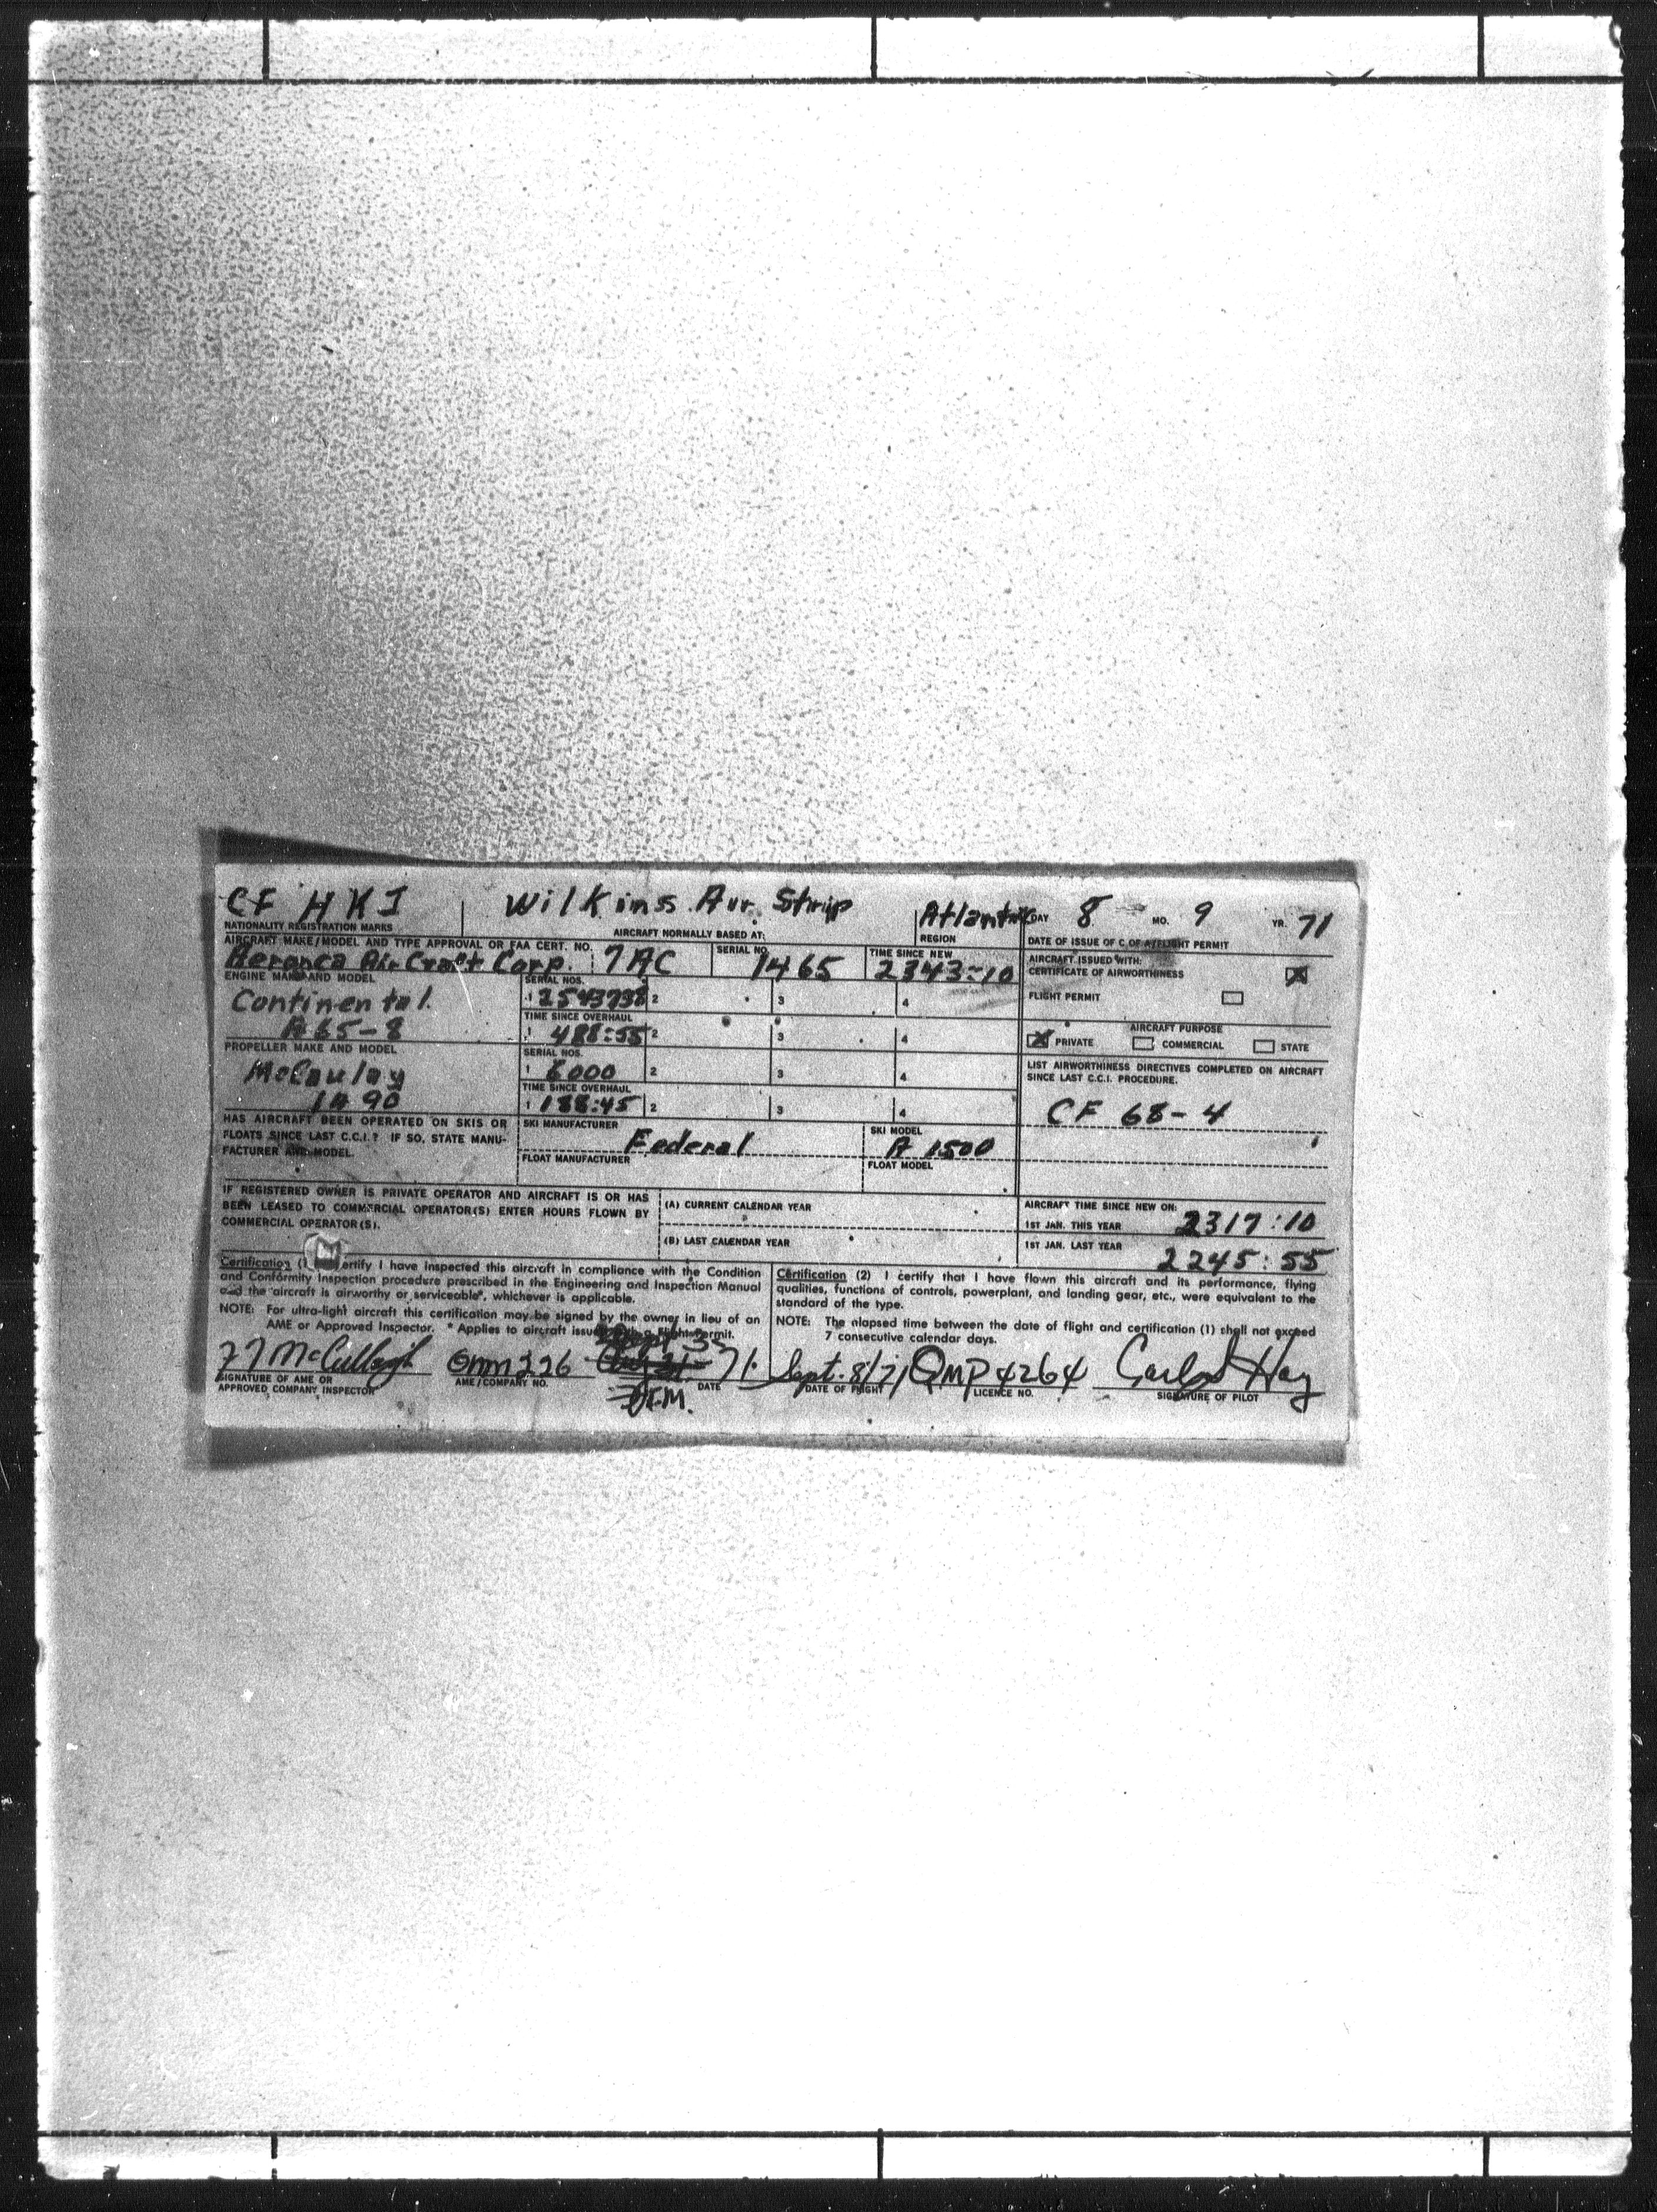 CF HKI Wilkins Air Strip Atlantic DAY 8 MO. 9 YR. 71
NATIONALITY REGISTRATION MARKS AIRCRAFT NORMALLY BASED AT: REGION DATE OF ISSUE OF C. OF A./FLIGHT PERMIT
AIRCRAFT MAKE/MODEL AND TYPE APPROVAL OR FAA CERT. NO. SERIAL NO. TIME SINCE NEW
Aeronca AirCraft Corp. 7AC 1465 2343-10
AIRCRAFT ISSUED WITH:
CERTIFICATE OF AIRWORTHINESS X
FLIGHT PERMIT
ENGINE MAKE AND MODEL SERIAL NOS.
Continental 1 2 3 4
A65-8
TIME SINCE OVERHAUL
1 488:55 2 3 4
AIRCRAFT PURPOSE
X PRIVATE COMMERCIAL STATE
PROPELLER MAKE AND MODEL SERIAL NOS.
McCaulay 1 6000 2 3 4
1A 90
TIME SINCE OVERHAUL
1 188:45 2 3 4
LIST AIRWORTHINESS DIRECTIVES COMPLETED ON AIRCRAFT
SINCE LAST C.C.I. PROCEDURE.
CF 68-4
HAS AIRCRAFT BEEN OPERATED ON SKIS OR
FLOATS SINCE LAST C.C.I.? IF SO, STATE MANU-
FACTURER AND MODEL.
SKI MANUFACTURER Federal SKI MODEL A 1500
FLOAT MANUFACTURER FLOAT MODEL
IF REGISTERED OWNER IS PRIVATE OPERATOR AND AIRCRAFT IS OR HAS
BEEN LEASED TO COMMERCIAL OPERATOR(S) ENTER HOURS FLOWN BY
COMMERCIAL OPERATOR(S).
(A) CURRENT CALENDAR YEAR
(B) LAST CALENDAR YEAR
AIRCRAFT TIME SINCE NEW ON:
1ST JAN. THIS YEAR 2317:10
1ST JAN. LAST YEAR 2245:55
Certification (1) certify I have inspected this aircraft in compliance with the Condition
and Conformity Inspection procedure prescribed in the Engineering and Inspection Manual
and the aircraft is airworthy or serviceable*, whichever is applicable.
NOTE: For ultra-light aircraft this certification may be signed by the owner in lieu of an
AME or Approved Inspector. * Applies to aircraft issued with a Flight Permit.
Certification (2) I certify that I have flown this aircraft and its performance, flying
qualities, functions of controls, powerplant, and landing gear, etc., were equivalent to the
standard of the type.
NOTE: The elapsed time between the date of flight and certification (1) shall not exceed
7 consecutive calendar days.
McCullogh 226 Sept 3 71. Sept. 8/71 QMP 4264 Hay
SIGNATURE OF AME OR
APPROVED COMPANY INSPECTOR AME/COMPANY NO. DATE DATE OF FLIGHT LICENCE NO. SIGNATURE OF PILOT